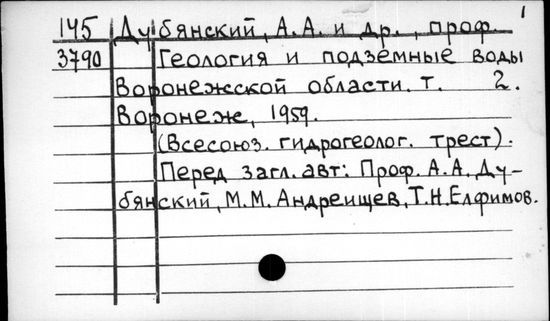 1
145 Дубянский, А.А. и др., проф.
3790 Геология и подземные воды
Воронежской области. т. 2.
Воронеж, 1959.
(Всесоюз. гидрогеолог. трест).
Перед загл. авт: Проф. А.А. Ду-
бянский, М.М. Андреищев, Т.Н. Елфимов.